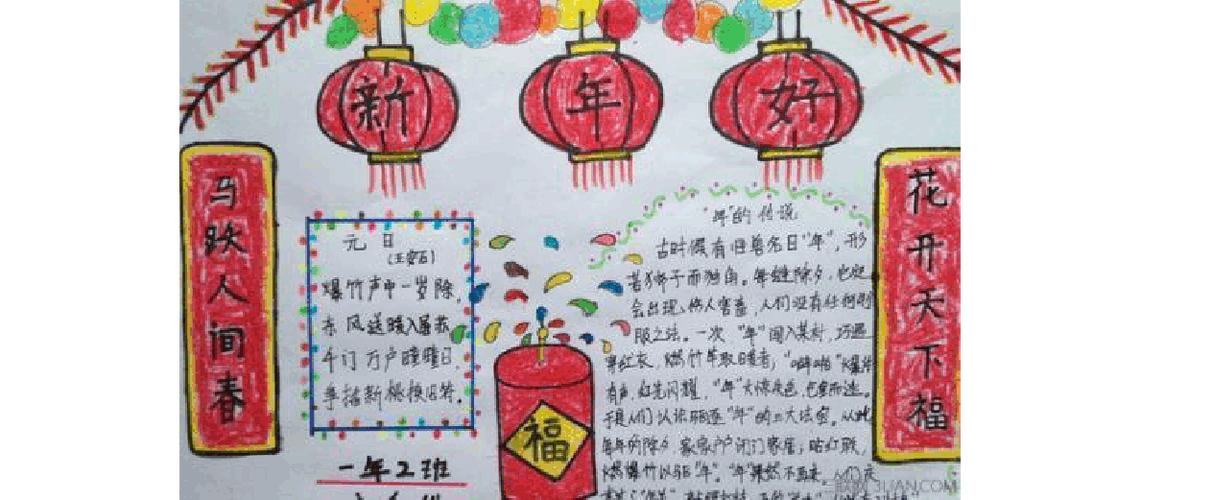 新年好
马跃人间春
花开天下福
元日
(王安石)
爆竹声中一岁除,
东风送暖入屠苏
千门万户曈曈日,
争插新桃换旧符。
福
一年2班
"年"的传说
古时候有旧兽名曰"年",形
若狮子而独角。每缝除夕,它定
会出现,伤人害畜,人们没有任何制
服之法。一次"年"闯入某村,巧遇
穿红衣,燃竹竿取暖者;"噼啪"爆炸
有声,红光闪耀,"年"大惊失色,仓皇而逃。
于是人们认识驱逐"年"的三大法宝。从此
每年的除夕,家家户户闭门家居;贴红联,
燃爆竹以驱"年"。"年"果然不再来,人们
3LIAN.COM